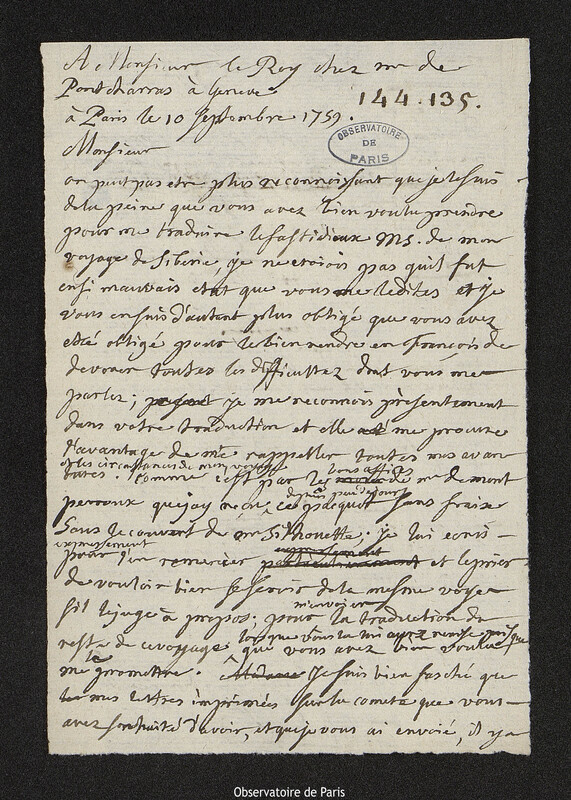 A Monsieur le Roy chez mr de
Pontcharras à Geneve
144.135.
à Paris le 10 Septembre 1759.
OBSERVATOIRE
DE
PARIS
Monsieur
on peut pas etre plus reconnoissant que je le suis
de la peine que vous avez bien voulu prendre
pour me traduire le fastidieux ms. de mon
voyage de Siberie, je ne croiois pas quil fut
en si mauvais etat que vous me le dites et je
vous en suis d'autant plus obligé que vous avez
eté obligé pour le bien rendre en françois de
devorer toutes les difficultez dont vous me
parlez; je me reconnois presentement
dans votre traduction et elle me procure
l'avantage de me rappeller toutes mes avan
et les circonstances de mon voyage
tures. Comme c'est par les bons offices de mr de mont
perroux que j'ay reçu depuis peu de jours ce pacquet sans fraix
sous le couvert de mr Silhouette; je lui ecris
expressement
pour l'en remercier et le prier
de vouloir bien se servir de la mesme voye
sil le juge à propos; pour m'envoier la traduction du
reste de ce voyage lorsque vous la lui aurez remise
que vous avez bien voulu
me la promettre. Je suis bien fasché que
mes lettres imprimées sur la comete que vous
avez souhaité d'avoir, et que je vous ai envoié, il y a
Observatoire de Paris